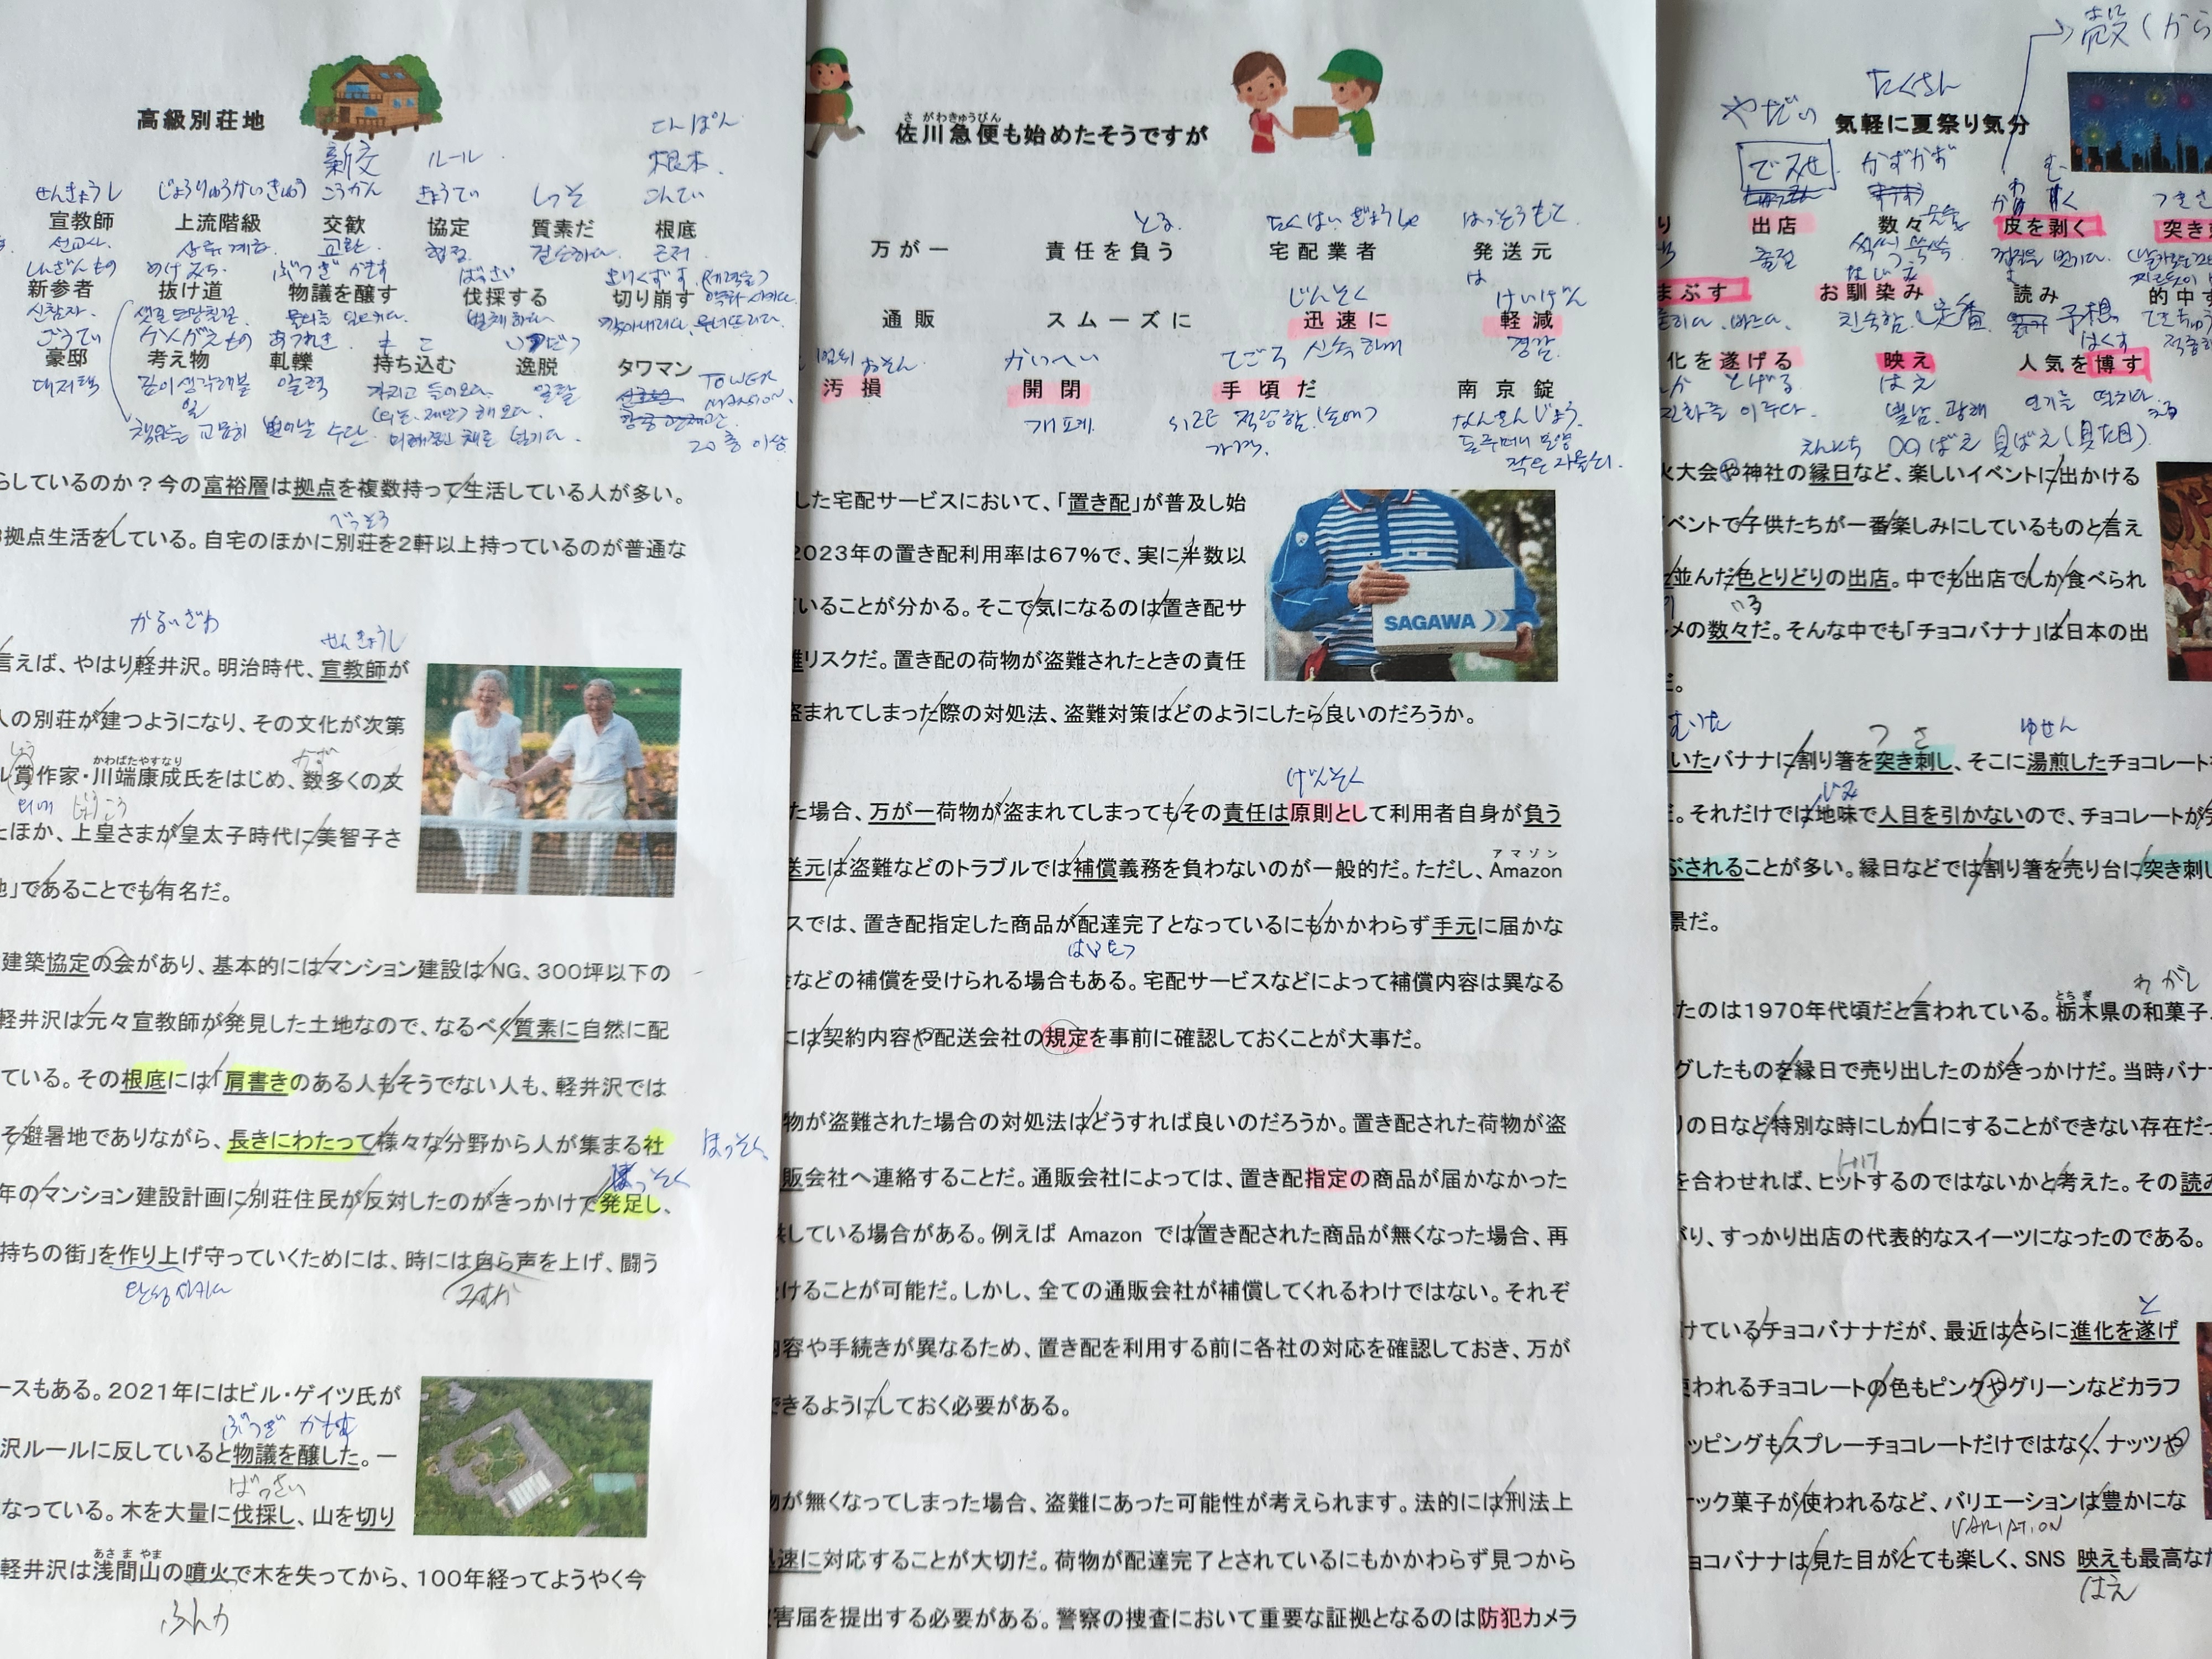 高級別荘地
こんぽん
新交
ルール
根本
せんきょうし じょうりゅうかいきゅう こうかん きょうてい しっそ こんてい
宣教師 上流階級 交歓 協定 質素だ 根底
선교사. 상류계급. 교환. 협정. 검소하다. 근저
しんざんもの ぬけみち ぶつぎ かもす ばっさい きりくずす
新参者 抜け道 物議を醸す 伐採する 切り崩す
신참자. 물의를 일으키다. 벌채하다. 깎아내리다. 무너뜨리다.
ごうてい かんがえもの あつれき もこ いつだつ
豪邸 考え物 軋轢 持ち込む 逸脱 タワマン
대저택 깊이 생각해볼 일 알력 가지고 들어오다. 일탈 TOWER MANSION.
20층 이상
らしているのか？今の富裕層は拠点を複数持って生活している人が多い。
べっそう
拠点生活をしている。自宅のほかに別荘を2軒以上持っているのが普通な
かるいざわ
せんきょうし
言えば、やはり軽井沢。明治時代、宣教師が
人の別荘が建つようになり、その文化が次第
しょう かわばたやすなり かず
ル賞作家・川端康成氏をはじめ、数多くの文
じょうこう
たほか、上皇さまが皇太子時代に美智子さ
地」であることでも有名だ。
建築協定の会があり、基本的にはマンション建設はNG、300坪以下の
軽井沢は元々宣教師が発見した土地なので、なるべく質素に自然に配
ている。その根底には「肩書きのある人もそうでない人も、軽井沢では
そ避暑地でありながら、長きにわたって様々な分野から人が集まる社
ほっそく
ほっそく
年のマンション建設計画に別荘住民が反対したのがきっかけで発足し、
持ちの街」を作り上げ守っていくためには、時には自ら声を上げ、闘う
みずか
ースもある。2021年にはビル・ゲイツ氏が
ぶつぎ かもす
沢ルールに反していると物議を醸した。一
ばっさい
なっている。木を大量に伐採し、山を切り
あさまやま
軽井沢は浅間山の噴火で木を失ってから、100年経ってようやく今
ふんか
さがわきゅうびん
佐川急便も始めたそうですが
とる. たくはいぎょうしゃ はっそうもと
万が一 責任を負う 宅配業者 発送元
は
じんそく けいげん
通販 スムーズに 迅速に 軽減
신속하게 경감
おそん かいへい てごろ
汚損 開閉 手頃だ 南京錠
개폐. SIZE 적당함.(손에) 가격. なんきんじょう.
작은 자물쇠.
した宅配サービスにおいて、「置き配」が普及し始
2023年の置き配利用率は67%で、実に半数以
いることが分かる。そこで気になるのは置き配サ
SAGAWA
難リスクだ。置き配の荷物が盗難されたときの責任
盗まれてしまった際の対処法、盗難対策はどのようにしたら良いのだろうか。
げんそく
た場合、万が一荷物が盗まれてしまってもその責任は原則として利用者自身が負う
アマゾン
送元は盗難などのトラブルでは補償義務を負わないのが一般的だ。ただし、Amazon
スでは、置き配指定した商品が配達完了となっているにもかかわらず手元に届かな
はいたつ
金などの補償を受けられる場合もある。宅配サービスなどによって補償内容は異なる
には契約内容や配送会社の規定を事前に確認しておくことが大事だ。
物が盗難された場合の対処法はどうすれば良いのだろうか。置き配された荷物が盗
販会社へ連絡することだ。通販会社によっては、置き配指定の商品が届かなかった
供している場合がある。例えば Amazon では置き配された商品が無くなった場合、再
けることが可能だ。しかし、全ての通販会社が補償してくれるわけではない。それぞ
内容や手続きが異なるため、置き配を利用する前に各社の対応を確認しておき、万が
できるようにしておく必要がある。
物が無くなってしまった場合、盗難にあった可能性が考えられます。法的には刑法上
迅速に対応することが大切だ。荷物が配達完了とされているにもかかわらず見つから
害届を提出する必要がある。警察の捜査において重要な証拠となるのは防犯カメラ
殻(から
たくさん
やたい
気軽に夏祭り気分
でみせ かずかず
出店 数々 皮を剥く 突き
출점
まぶす お馴染み 読み 的中す
친숙함. 定番 予想
はくす
化を遂げる 映え 人気を博す
とげる はえ
진화를 이루다.
えんにち ○○ばえ 見ばえ(見た目).
火大会や神社の縁日など、楽しいイベントに出かける
ベントで子供たちが一番楽しみにしているものと言え
並んだ色とりどりの出店。中でも出店でしか食べられ
いろ
メの数々だ。そんな中でも「チョコバナナ」は日本の出
だ。
つ さ ゆせん
いたバナナに割り箸を突き刺し、そこに湯煎したチョコレート
じみ
だ。それだけでは地味で人目を引かないので、チョコレートが
ぶされることが多い。縁日などでは割り箸を売り台に突き刺し
景だ。
わがし
とちぎ
たのは1970年代頃だと言われている。栃木県の和菓子
グしたものを縁日で売り出したのがきっかけだ。当時バナ
りの日など特別な時にしか口にすることができない存在だっ
を合わせれば、ヒットするのではないかと考えた。その読み
がり、すっかり出店の代表的なスイーツになったのである。
と
けているチョコバナナだが、最近はさらに進化を遂げ
使われるチョコレートの色もピンクやグリーンなどカラフ
ッピングもスプレーチョコレートだけではなく、ナッツや
ナック菓子が使われるなど、バリエーションは豊かにな
VARIATION
ョコバナナは見た目がとても楽しく、SNS 映えも最高な
はえ